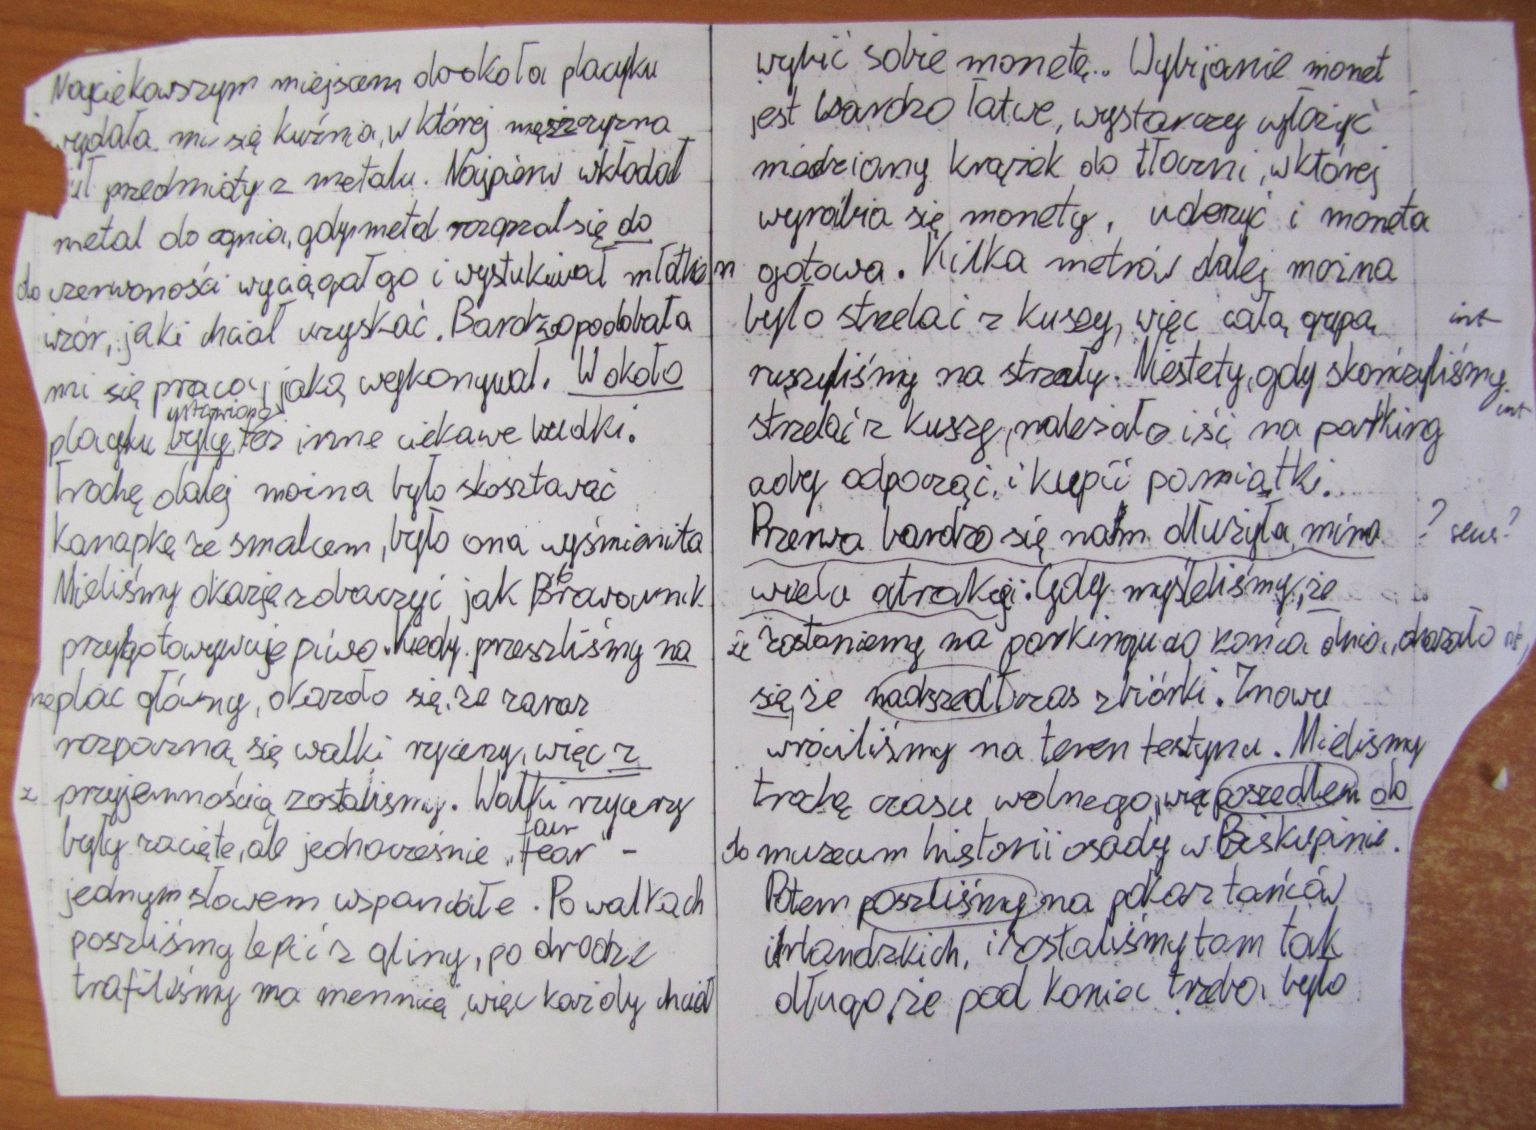 Najciekawszym miejscem dookoła placyku
wydała mi się kuźnia, w której mężczyzna
przedmioty z metalu. Najpierw wkładał
metal do ognia, gdy metal rozgrzał się do
do czerwoności wyciągał go i wystukiwał młotkiem
wzór, jaki chciał uzyskać. Bardzo podobała
mi się praca, jaką wykonywał. W około
ustawione
placyku były też inne ciekawe budki.
Trochę dalej można było skosztować
kanapkę ze smalcem, było ona wyśmienita
Mieliśmy okazję zobaczyć jak Browarnik
przygotowywuje piwo. Kiedy przeszliśmy na
na plac główny, okazało się, że zaraz
rozpoczną się walki rycerzy, więc z
z przyjemnością zostaliśmy. Walki rycerzy
fair
były zacięte, ale jednocześnie „fear" –
jednym słowem wspaniałe. Po walkach
poszliśmy lepić z gliny, po drodze
trafiliśmy na mennicę, więc każdy chciał
wybić sobie monetę.. Wybijanie monet
jest bardzo łatwe, wystarczy włożyć
miedziany krążek do tłoczni, w której
wyrabia się monety, uderzyć i moneta
gotowa. Kilka metrów dalej można
było strzelać z kuszy, więc całą grupą int
ruszyliśmy na strzały. Niestety, gdy skończyliśmy
int
strzelać z kuszy, należało iść na parking
aby odpocząć, i kupić pamiątki.
Przerwa bardzo się nam dłużyła, mimo ? sens?
wielu atrakcji. Gdy myśleliśmy, że
że zostaniemy na parkingu do końca dnia, okazało
się, że nadszedł czas zbiórki. Znowu
wróciliśmy na teren festynu. Mieliśmy
trochę czasu wolnego, więc poszedłem do
do muzeum historii osady w Biskupinie.
Potem poszliśmy na pokaz tańców
irlandzkich, i zostaliśmy tam tak
długo, że pod koniec trzeba było